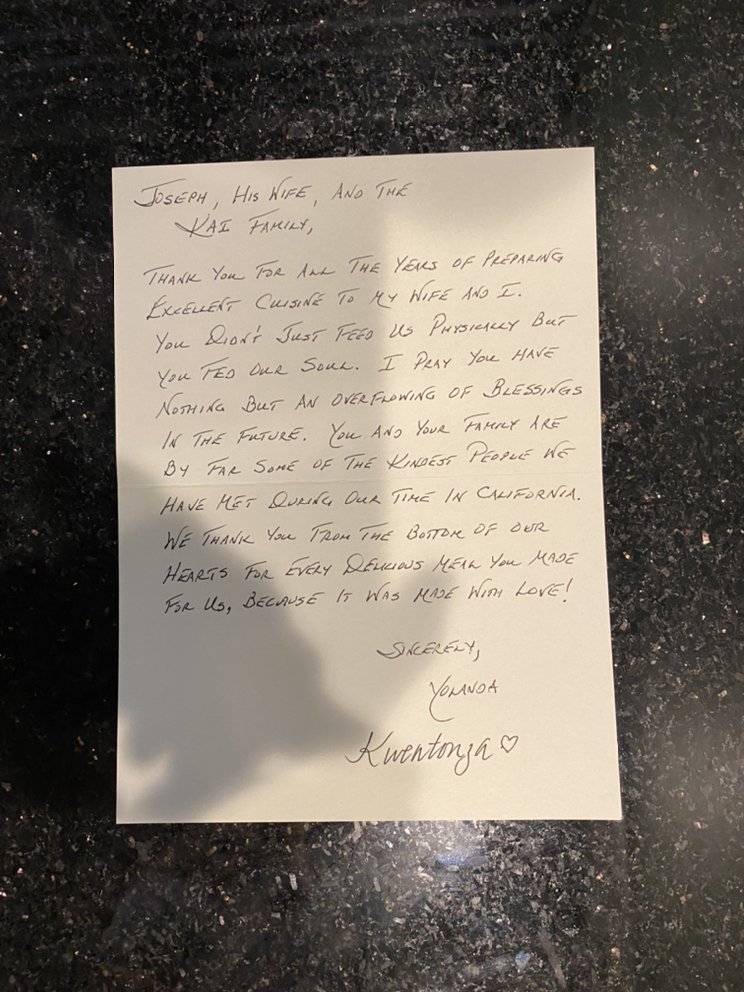 Joseph, His Wife, And The
Kai Family,
Thank You For All The Years of Preparing
Excellent Cuisine To My Wife And I.
You Didn't Just Feed Us Physically But
You Fed Our Soul. I Pray You Have
Nothing But An Overflowing of Blessings
In The Future. You And Your Family Are
By Far Some of The Kindest People We
Have Met During Our Time In California.
We Thank You From The Bottom of Our
Hearts For Every Delicious Meal You Made
For Us, Because It Was Made With Love!
Sincerely,
Yolanda
Kwentonza ♡